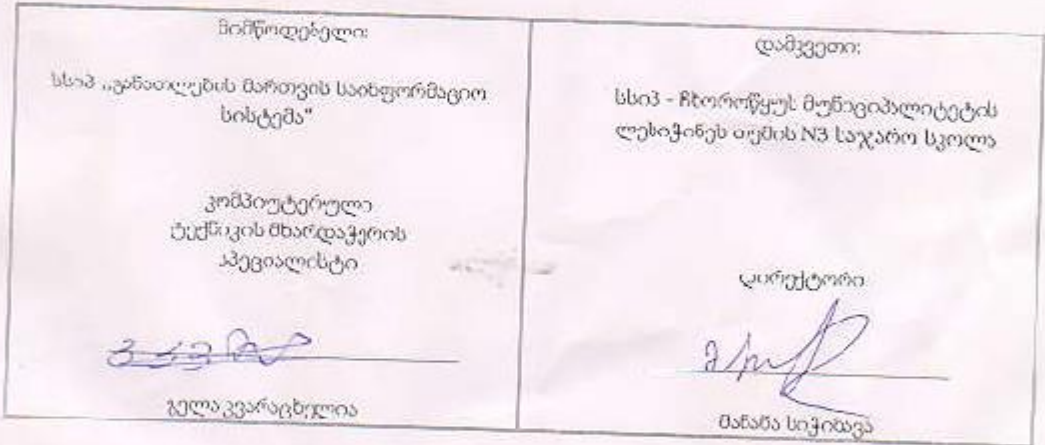 მიმწოდებელი:
სსიპ „განათლების მართვის საინფორმაციო
სისტემა"
კომპიუტერული
ტექნიკის მხარდაჭერის
სპეციალისტი
გელა კვარაცხელია
დამკვეთი:
სსიპ - ჩხოროწყუს მუნიციპალიტეტის
ლესიჭინეს თემის N3 საჯარო სკოლა
დირექტორი
მანანა სიჭინავა